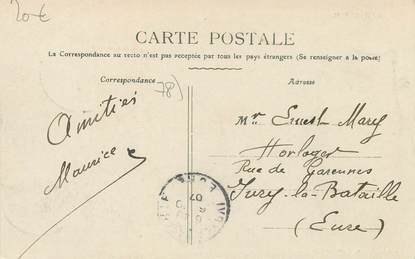 20€
CARTE POSTALE
La Correspondance au recto n'est pas acceptée par tous les pays étrangers (Se renseigner à la poste)
Correspondance
Adresse
78)
Amitiés
Maurice
Mr. Ernest Mary
Horloger
Rue de Garennes
Ivry-la-Bataille
(Eure)